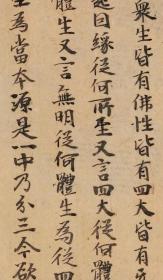 衆生皆有佛性皆有
起因緣從何所至又言四大從何
體生又言無明從何體生為從四
至為當本源是一中乃分三今欲